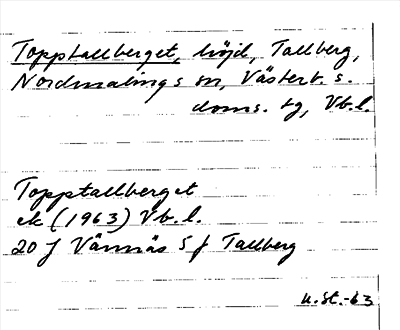 Topptallberget, höjd, Tallberg,
Nordmalings sn, Västerb. s.
doms. tg, Vb.l.
Topptallberget
ek (1963) Vb.l.
20 J Vännäs 5 f Tallberg
U.St.-63